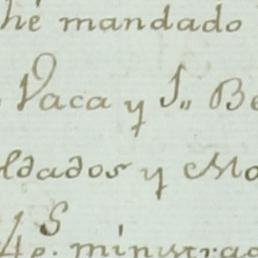 he mandado
Vaca y S,, Be
ldados y Mo
4 S e. ministrad